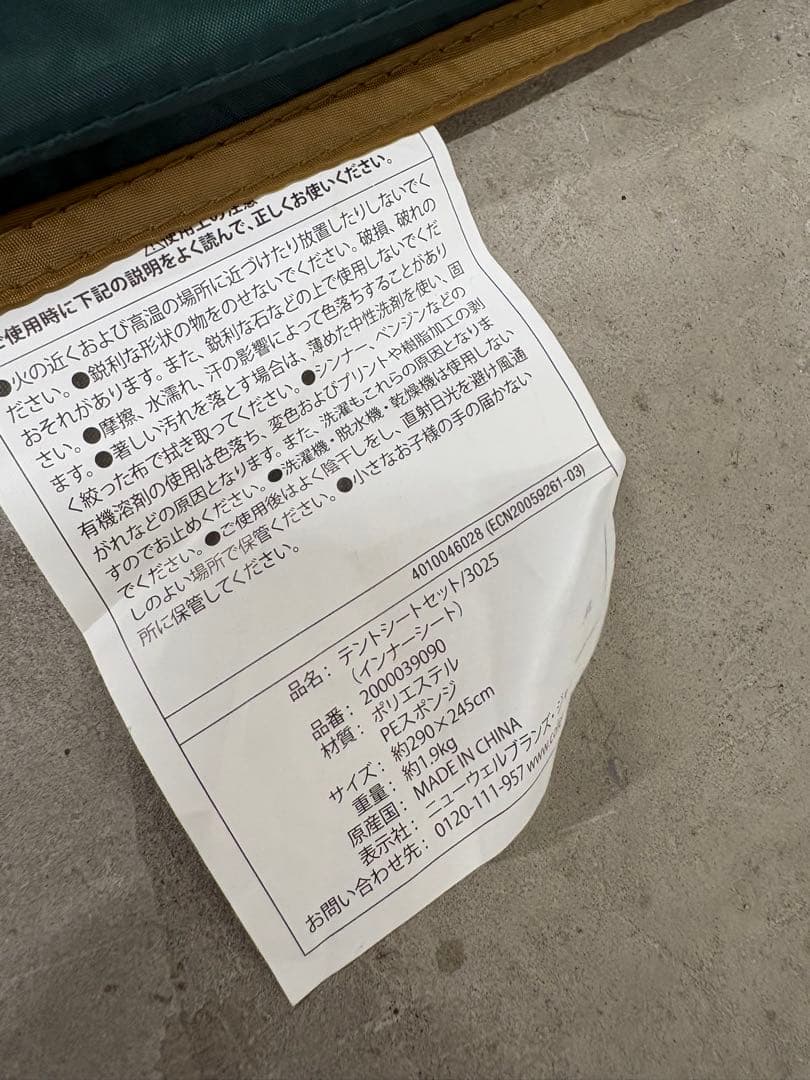 使用上の注意
ご使用時に下記の説明をよく読んで、正しくお使いください。
●火の近くおよび高温の場所に近づけたり放置したりしないでく
ださい。●鋭利な形状の物をのせないでください。破損、破れの
おそれがあります。また、鋭利な石などの上で使用しないでくだ
さい。●摩擦、水濡れ、汗の影響によって色落ちすることがあり
ます。●著しい汚れを落とす場合は、薄めた中性洗剤を使い、固
く絞った布で拭き取ってください。●シンナー、ベンジンなどの
有機溶剤の使用は色落ち、変色およびプリントや樹脂加工の剥
がれなどの原因となります。また、洗濯もこれらの原因となりま
すのでお止めください。●洗濯機・脱水機・乾燥機は使用しない
でください。●ご使用後はよく陰干しをし、直射日光を避け風通
しのよい場所で保管ください。●小さなお子様の手の届かない
所に保管してください。
4010046028 (ECN20059261-03)
品名：テントシートセット/3025
（インナーシート）
品番：2000039090
材質：ポリエステル
PEスポンジ
サイズ：約290×245cm
重量：約1.9kg
原産国：MADE IN CHINA
表示社：ニューウェルブランズ・ジャ
お問い合わせ先：0120-111-957 www.co